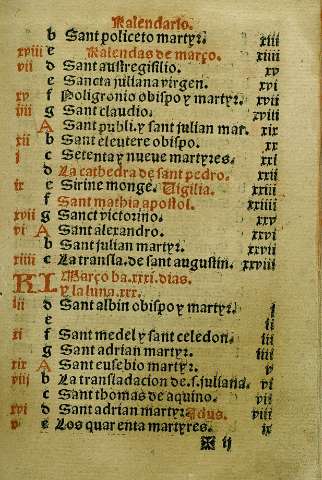 Kalendario.
b Sant policeto martyr. xiii
xviii e Kalendas de março. xiiii
vii d Sant austregisilio. xv
e Sancta juliana virgen. xvi
xv f Poligronio obispo y martyr. xvii
iiii g Sant claudio. xviii
A Sant publi. y sant julian mar. xix
xii b Sant eleutere obispo. xx
j c Setenta y nueve martyres. xxi
d La cathedra de sant pedro. xxii
ix e Sirine monge. Vigilia. xxiii
f Sant mathia apostol. xxiiii
xvii g Sanct victorino. xxv
vi A Sant alexandro. xxvi
b Sant julian martyr. xxvii
xiiii c La transla. de sant augustin. xxviii
KL Março ha .xxxi. dias.
y la luna .xxx.
iii d Sant albin obispo y martyr. j
e ij
xi f Sant medel y sant celedon. iij
g Sant adrian martyr. iiij
xix A Sant eusebio martyr. v
viij b La transladacion de .s. juliana. vi
c Sant thomas de aquino. vii
xvi d Sant adrian martyr. Idus. viii
v e Los quarenta martyres. ix
✠ ij